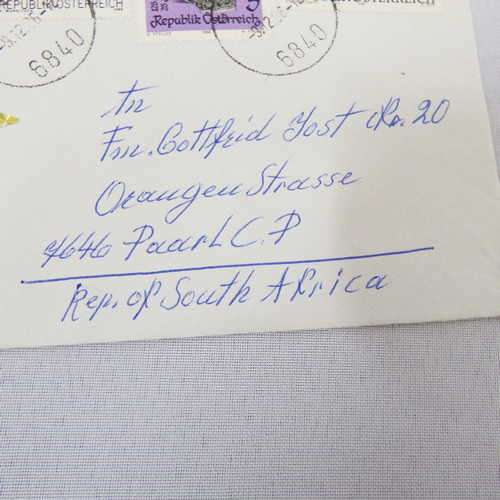 REPUBLIK ÖSTERREICH
5
Republik Österreich
6840
6840
An
Fm. Gottfried Jost Nr. 20
Orangen Strasse
7646 Paarl C.P
Rep. of South Africa